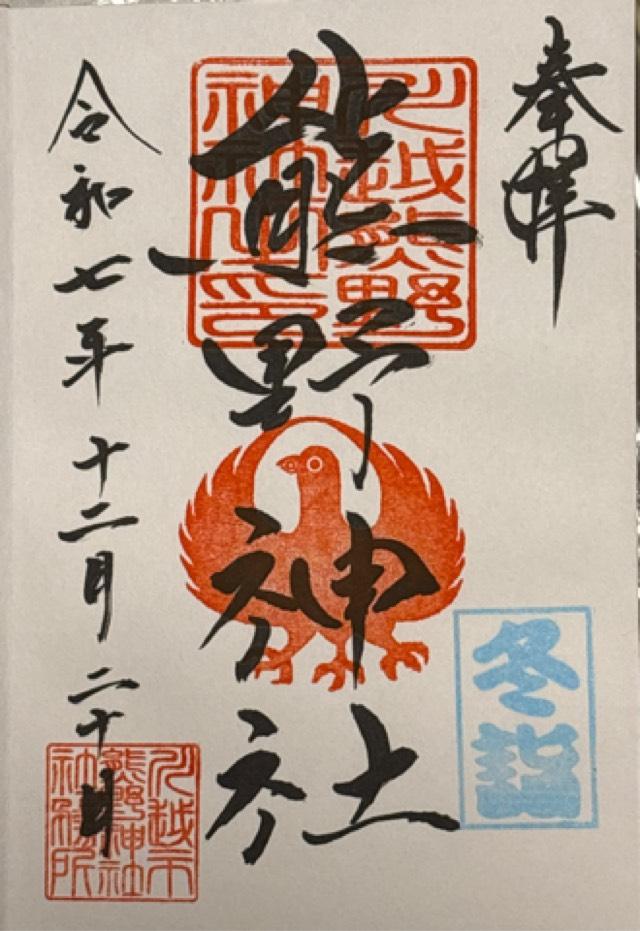 奉拝
熊野神社
川越熊野
神社之印
冬詣
令和七年十二月二十日
川越市
熊野神社
社務所